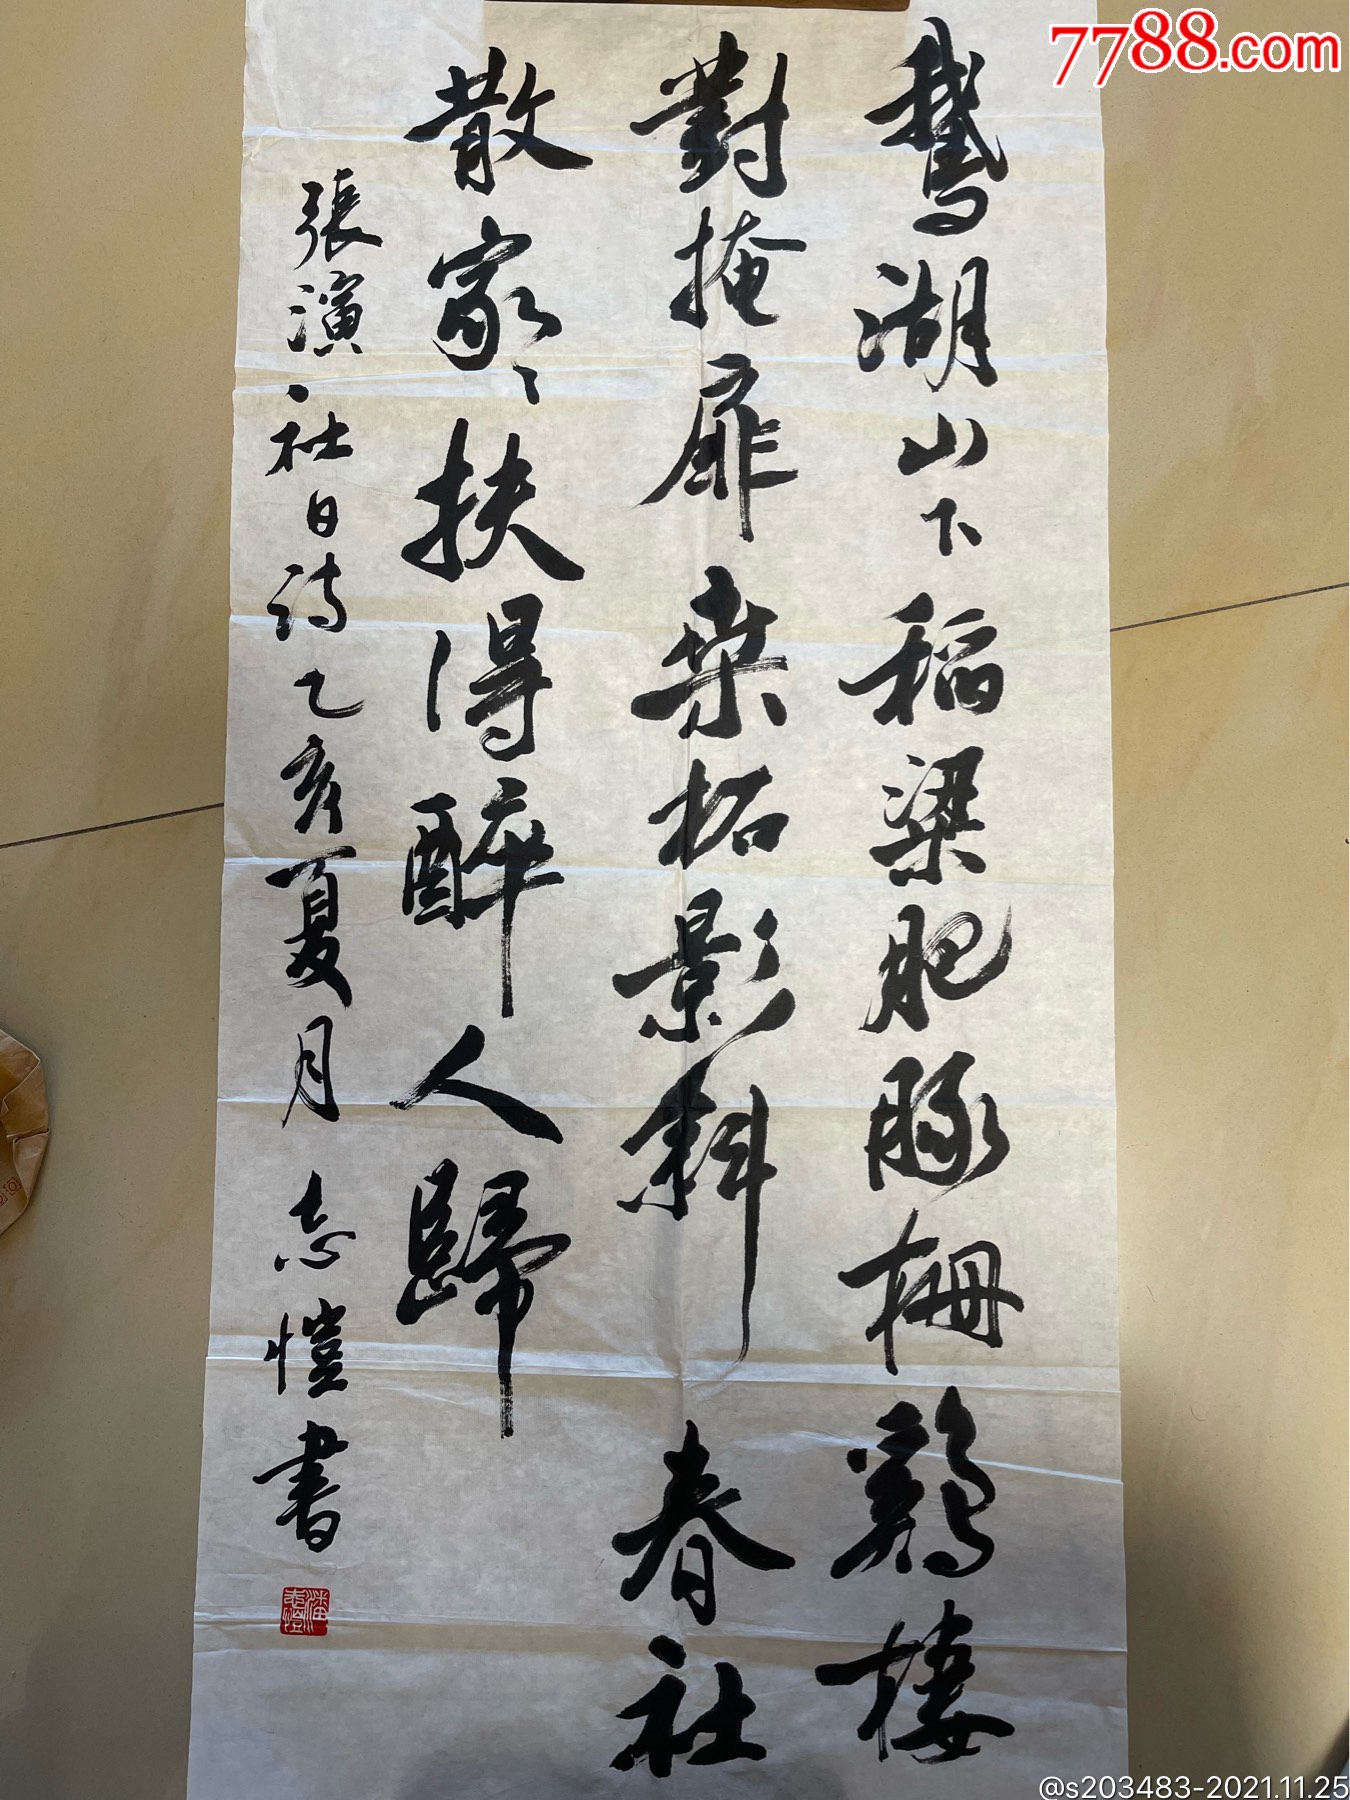 7788.com
鵝湖山下稻粱肥豚栅鷄棲
對掩扉桑柘影斜春社
散家々扶得醉人歸
張演社日詩乙亥夏月 志愷書
潘志愷
@s203483-2021.11.25